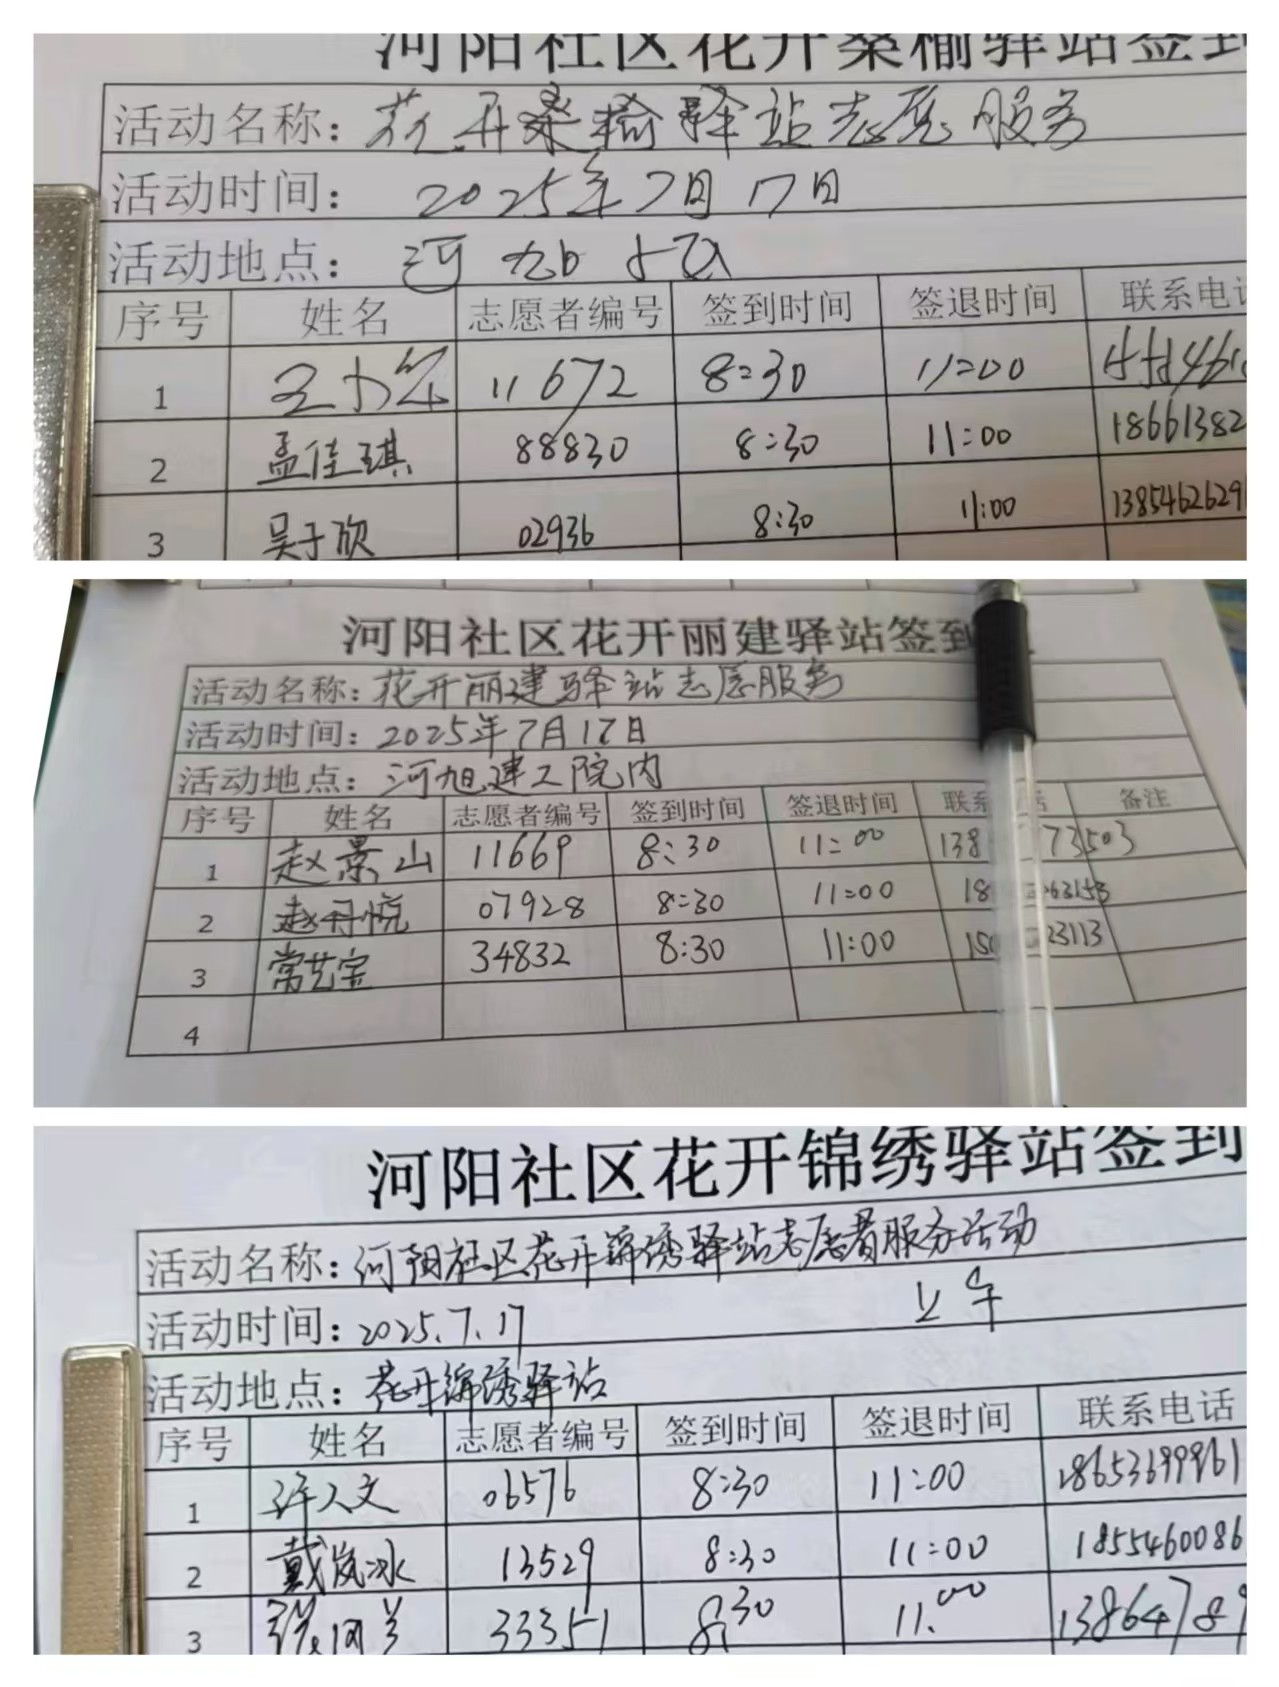 河阳社区花开桑榆驿站签到
活动名称：花开桑榆驿站志愿服务
活动时间：2025年7月17日
活动地点：河
序号 姓名 志愿者编号 签到时间 签退时间 联系电话
1 11672 8:30 11:00
2 孟佳琪 88830 8:30 11:00 18661382
3 吴于欣 02936 8:30 11:00 1385462629
河阳社区花开丽建驿站签到
活动名称：花开丽建驿站志愿服务
活动时间：2025年7月17日
活动地点：河旭建工院内
序号 姓名 志愿者编号 签到时间 签退时间 联系 话 备注
1 赵景山 11669 8:30 11:00 138 73503
2 赵丹悦 07928 8:30 11:00 18 63153
3 常艺宝 34832 8:30 11:00 150 23113
4
河阳社区花开锦绣驿站签到
活动名称：河阳社区花开锦绣驿站志愿者服务活动
活动时间：2025.7.17 上午
活动地点：花开锦绣驿站
序号 姓名 志愿者编号 签到时间 签退时间 联系电话
1 许人文 06576 8:30 11:00 18653699961
2 戴岚冰 13529 8:30 11:00 1855460086
3 33351 8:30 11:00 13864789